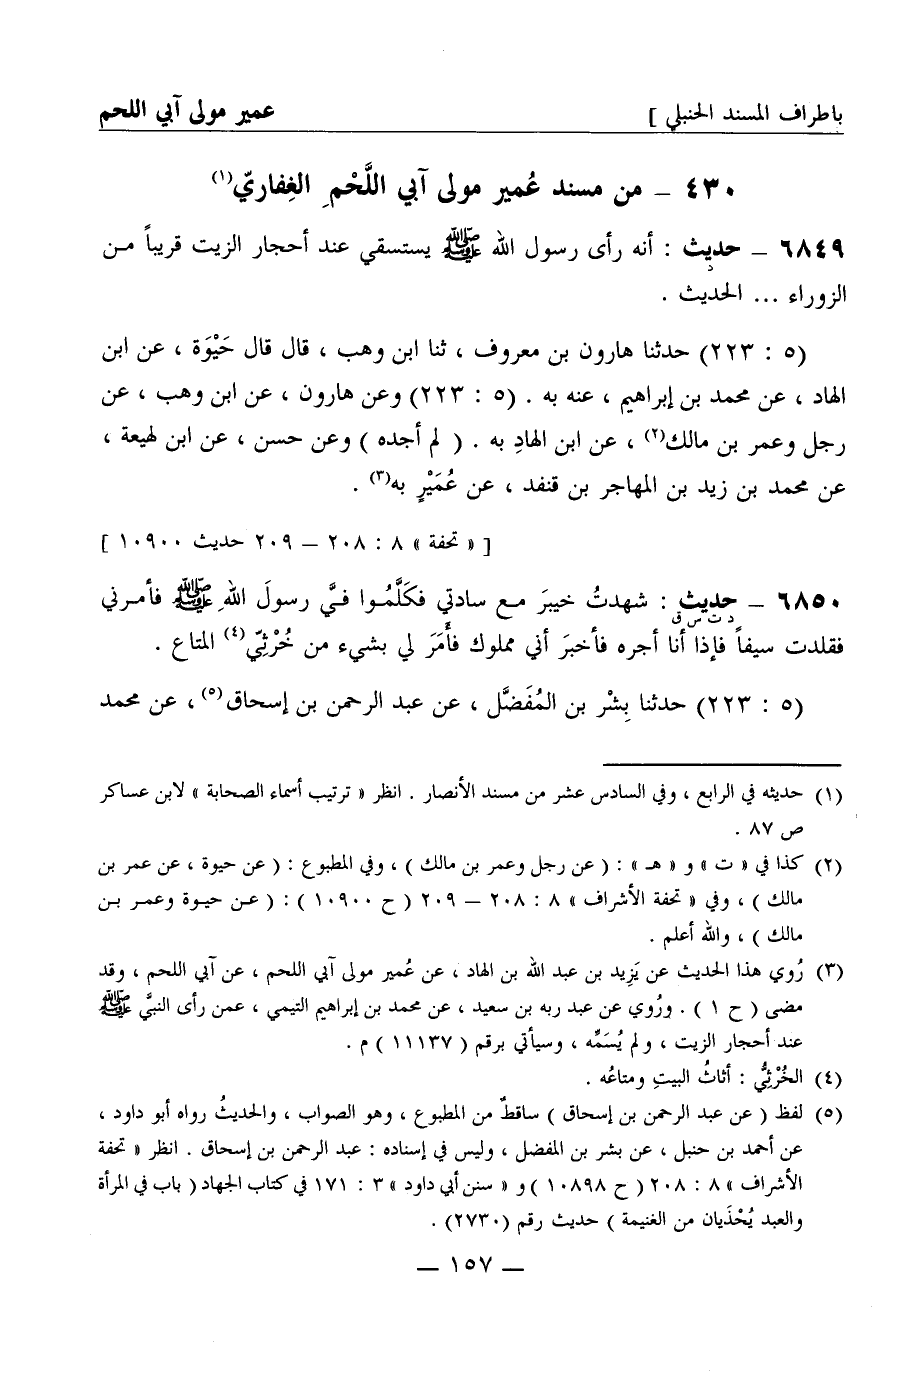 باطراف المسند الحنبلي ] عمير مولى آبي اللحم
٤٣٠ – من مسند عُمير مولى آبي اللَّحْمِ الغِفاريّ(١)
٦٨٤٩ – حديث : أنه رأى رسول الله ﷺ يستسقي عند أحجار الزيت قريباً من
د
الزوراء ... الحديث .
(٥ : ٢٢٣) حدثنا هارون بن معروف ، ثنا ابن وهب ، قال قال حَيْوَة ، عن ابن
الهاد ، عن محمد بن إبراهيم ، عنه به . (٥ : ٢٢٣) وعن هارون ، عن ابن وهب ، عن
رجل وعمر بن مالك(٢) ، عن ابن الهادِ به . ( لم أجده ) وعن حسن ، عن ابن لهيعة ،
عن محمد بن زيد بن المهاجر بن قنفد ، عن عُمَيْرٍ به(٣) .
[ « تحفة » ٨ : ٢٠٨ – ٢٠٩ حديث ١٠٩٠٠ ]
٦٨٥٠ – حديث : شهدتُ خيبرَ مع سادتي فكَلَّمُوا فيَّ رسولَ اللهِ ﷺ فأمرني
د ت س ق
فقلدت سيفاً فإذا أنا أجره فأخبرَ أني مملوك فأَمَرَ لي بشيء من خُرْثِيّ(٤) المتاع .
(٥ : ٢٢٣) حدثنا بِشْر بن المُفَضَّل ، عن عبد الرحمن بن إسحاق(٥) ، عن محمد
(١) حديثه في الرابع ، وفي السادس عشر من مسند الأنصار . انظر « ترتيب أسماء الصحابة » لابن عساكر
ص ٨٧ .
(٢) كذا في « ت » و « هـ » : ( عن رجل وعمر بن مالك ) ، وفي المطبوع : ( عن حيوة ، عن عمر بن
مالك ) ، وفي « تحفة الأشراف » ٨ : ٢٠٨ – ٢٠٩ ( ح ١٠٩٠٠ ) : ( عن حيوة وعمر بن
مالك ) ، والله أعلم .
(٣) رُوي هذا الحديث عن يَزيد بن عبد الله بن الهاد ، عن عُمير مولى آبي اللحم ، عن آبي اللحم ، وقد
مضى ( ح ١ ) . ورُوي عن عبد ربه بن سعيد ، عن محمد بن إبراهيم التيمي ، عمن رأى النبيَّ ﷺ
عند أحجار الزيت ، ولم يُسَمِّه ، وسيأتي برقم ( ١١١٣٧ ) م .
(٤) الخُرْثِيُّ : أثاثُ البيتِ ومتاعُه .
(٥) لفظ ( عن عبد الرحمن بن إسحاق ) ساقطٌ من المطبوع ، وهو الصواب ، والحديثُ رواه أبو داود ،
عن أحمد بن حنبل ، عن بشر بن المفضل ، وليس في إسناده : عبد الرحمن بن إسحاق . انظر « تحفة
الأشراف » ٨ : ٢٠٨ ( ح ١٠٨٩٨ ) و « سنن أبي داود » ٣ : ١٧١ في كتاب الجهاد ( باب في المرأة
والعبد يُحْذَيان من الغنيمة ) حديث رقم (٢٧٣٠) .
– ١٥٧ –